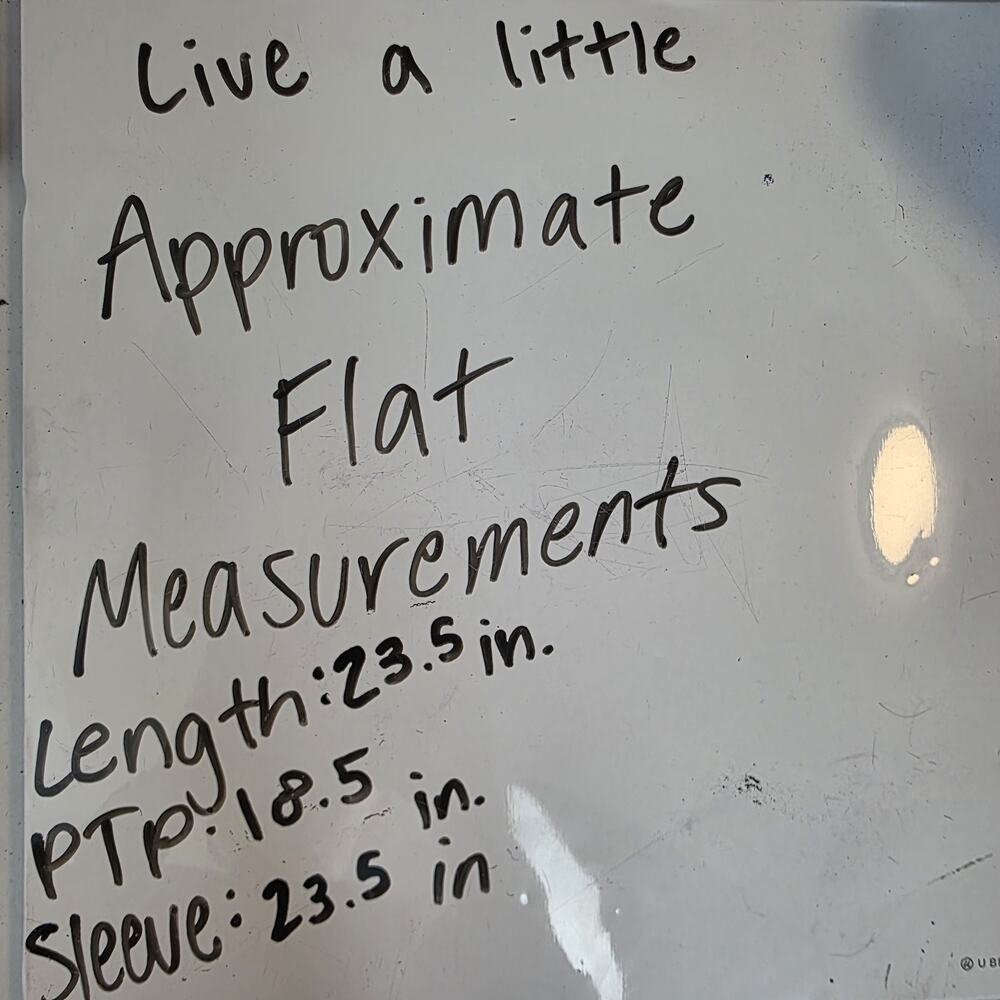 Live a little
Approximate
Flat
Measurements
Length: 23.5 in.
PTP: 18.5 in.
Sleeve: 23.5 in